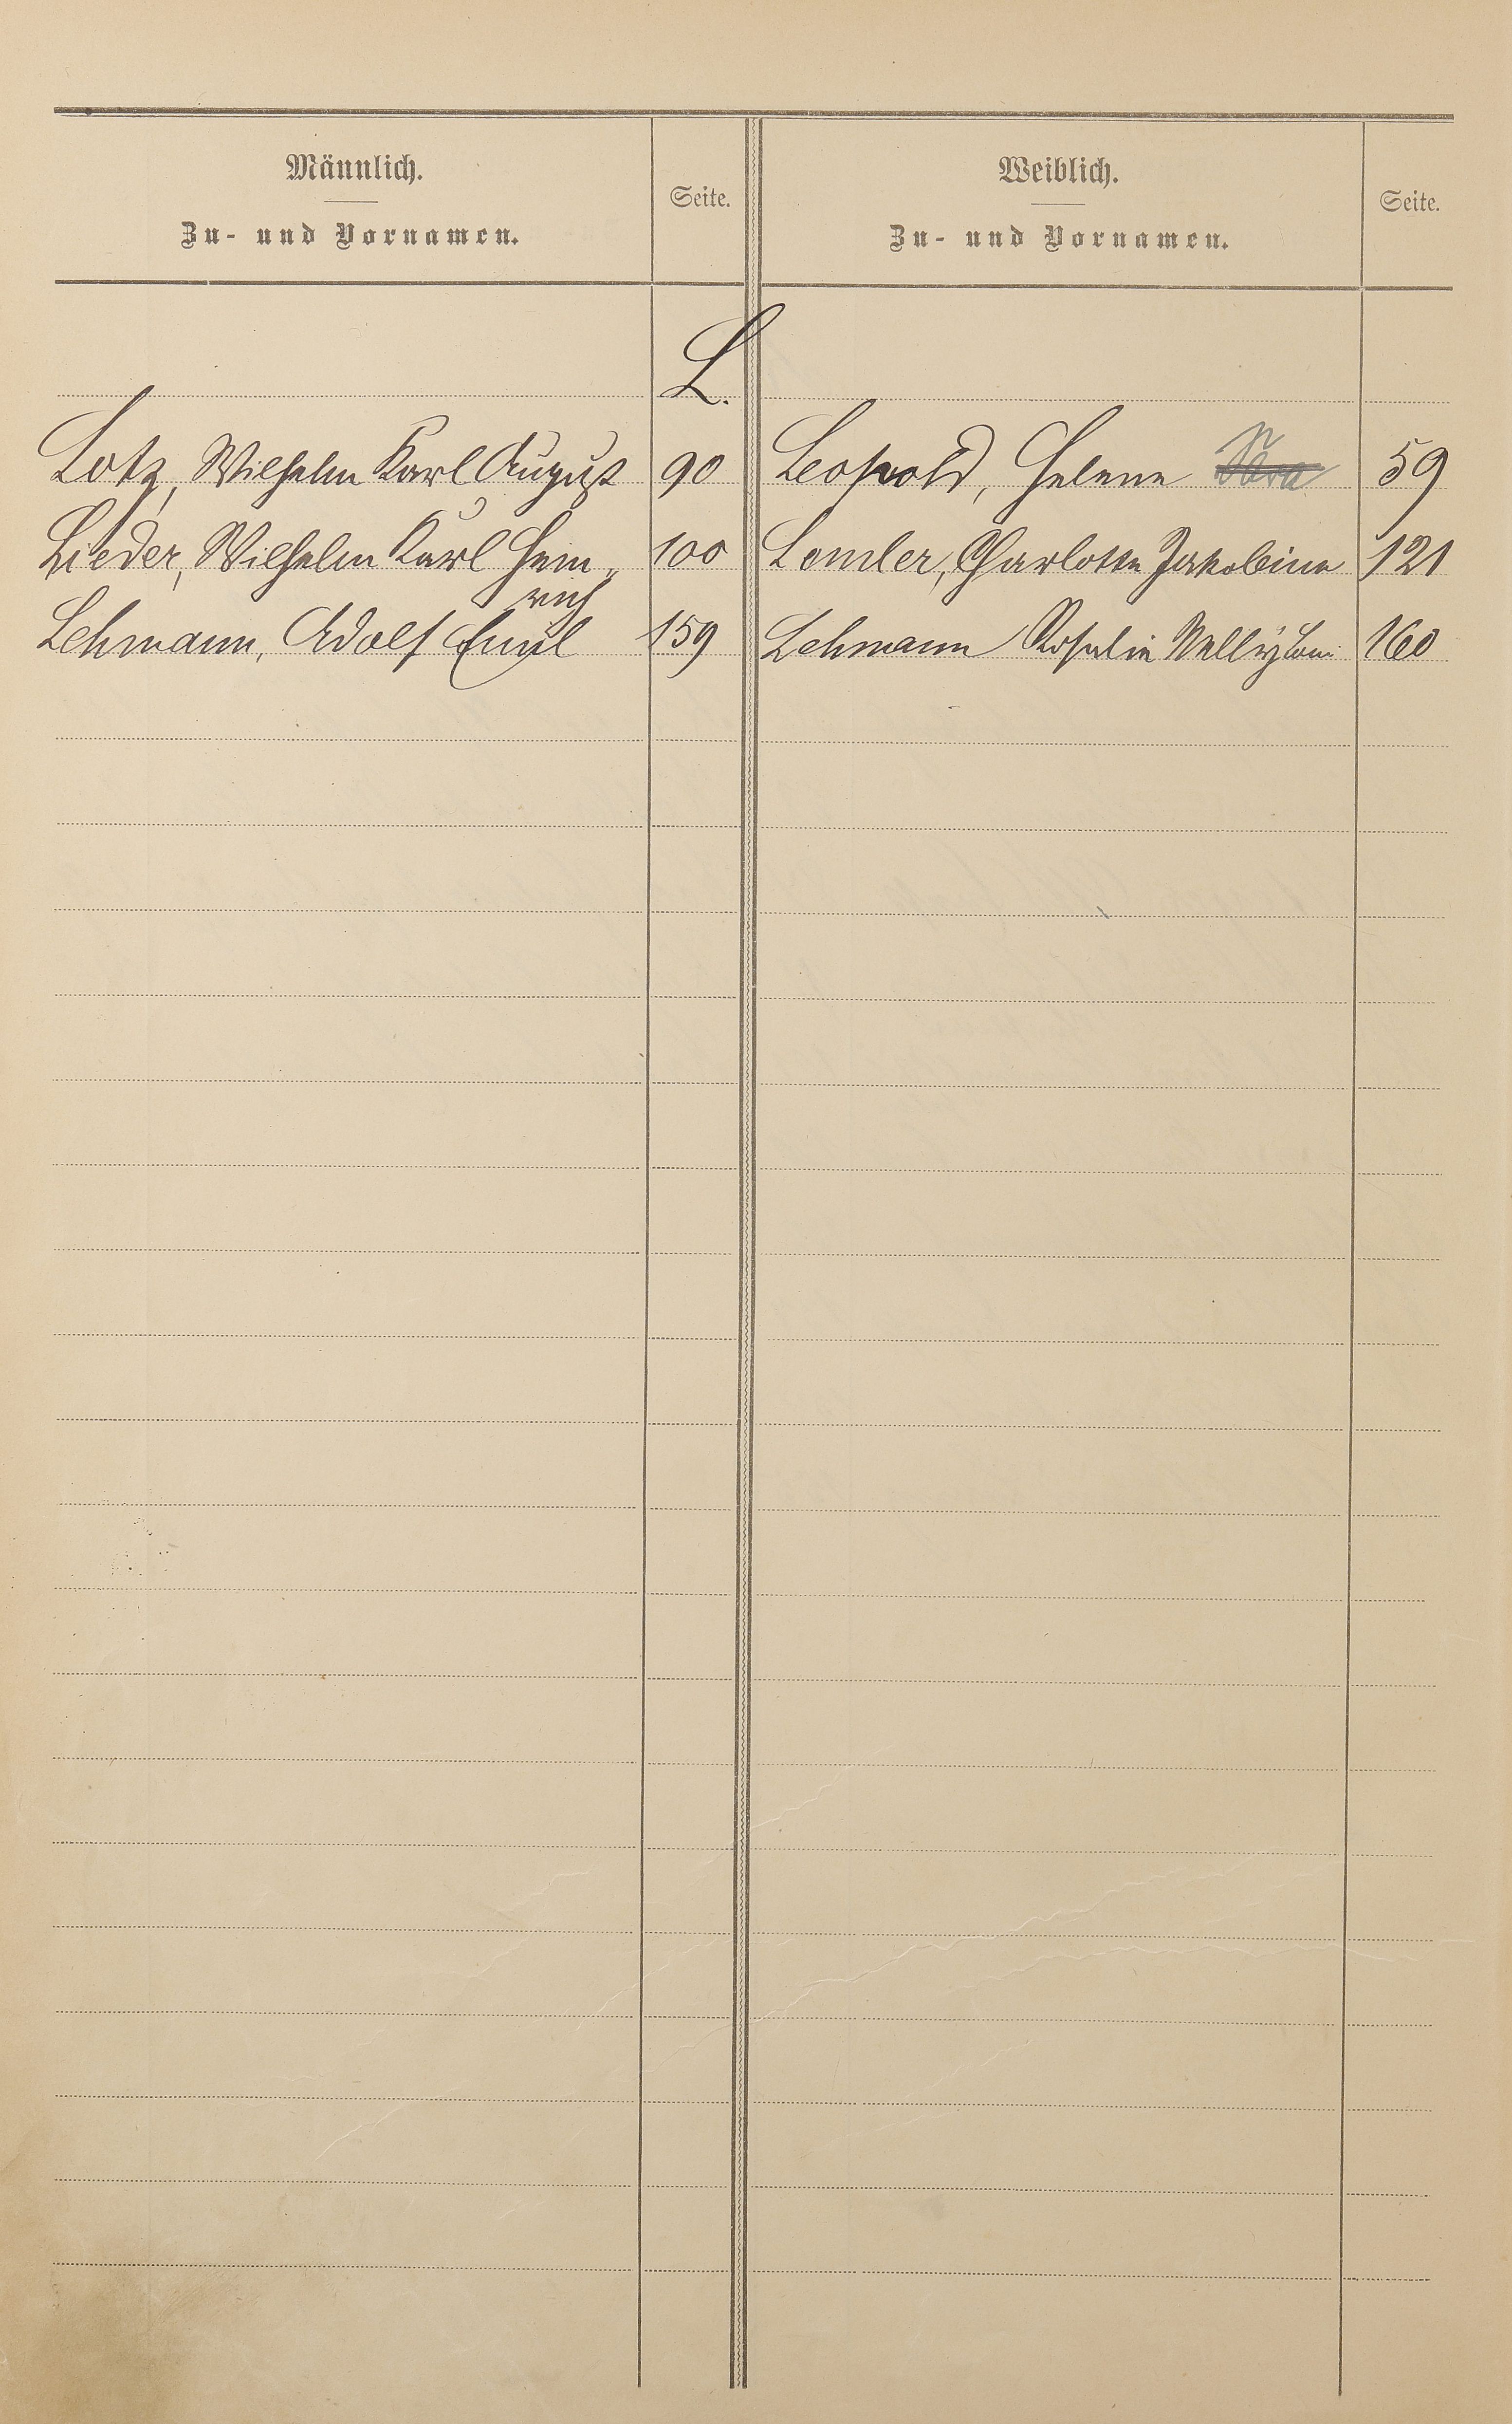 Männlich.
Zu- und Vornamen.
Seite.
Weiblich.
Zu- und Vornamen.
Seite.
L.
Lotz, Wilhelm Karl August 90
Leopold, Helene Sara 59
Lieder, Wilhelm Karl Hein„ 100
rich
Lemler, Charlotte Jakobine 121
Lehmann, Adolf Emil 159
Lehmann Rosalie Nelly 160